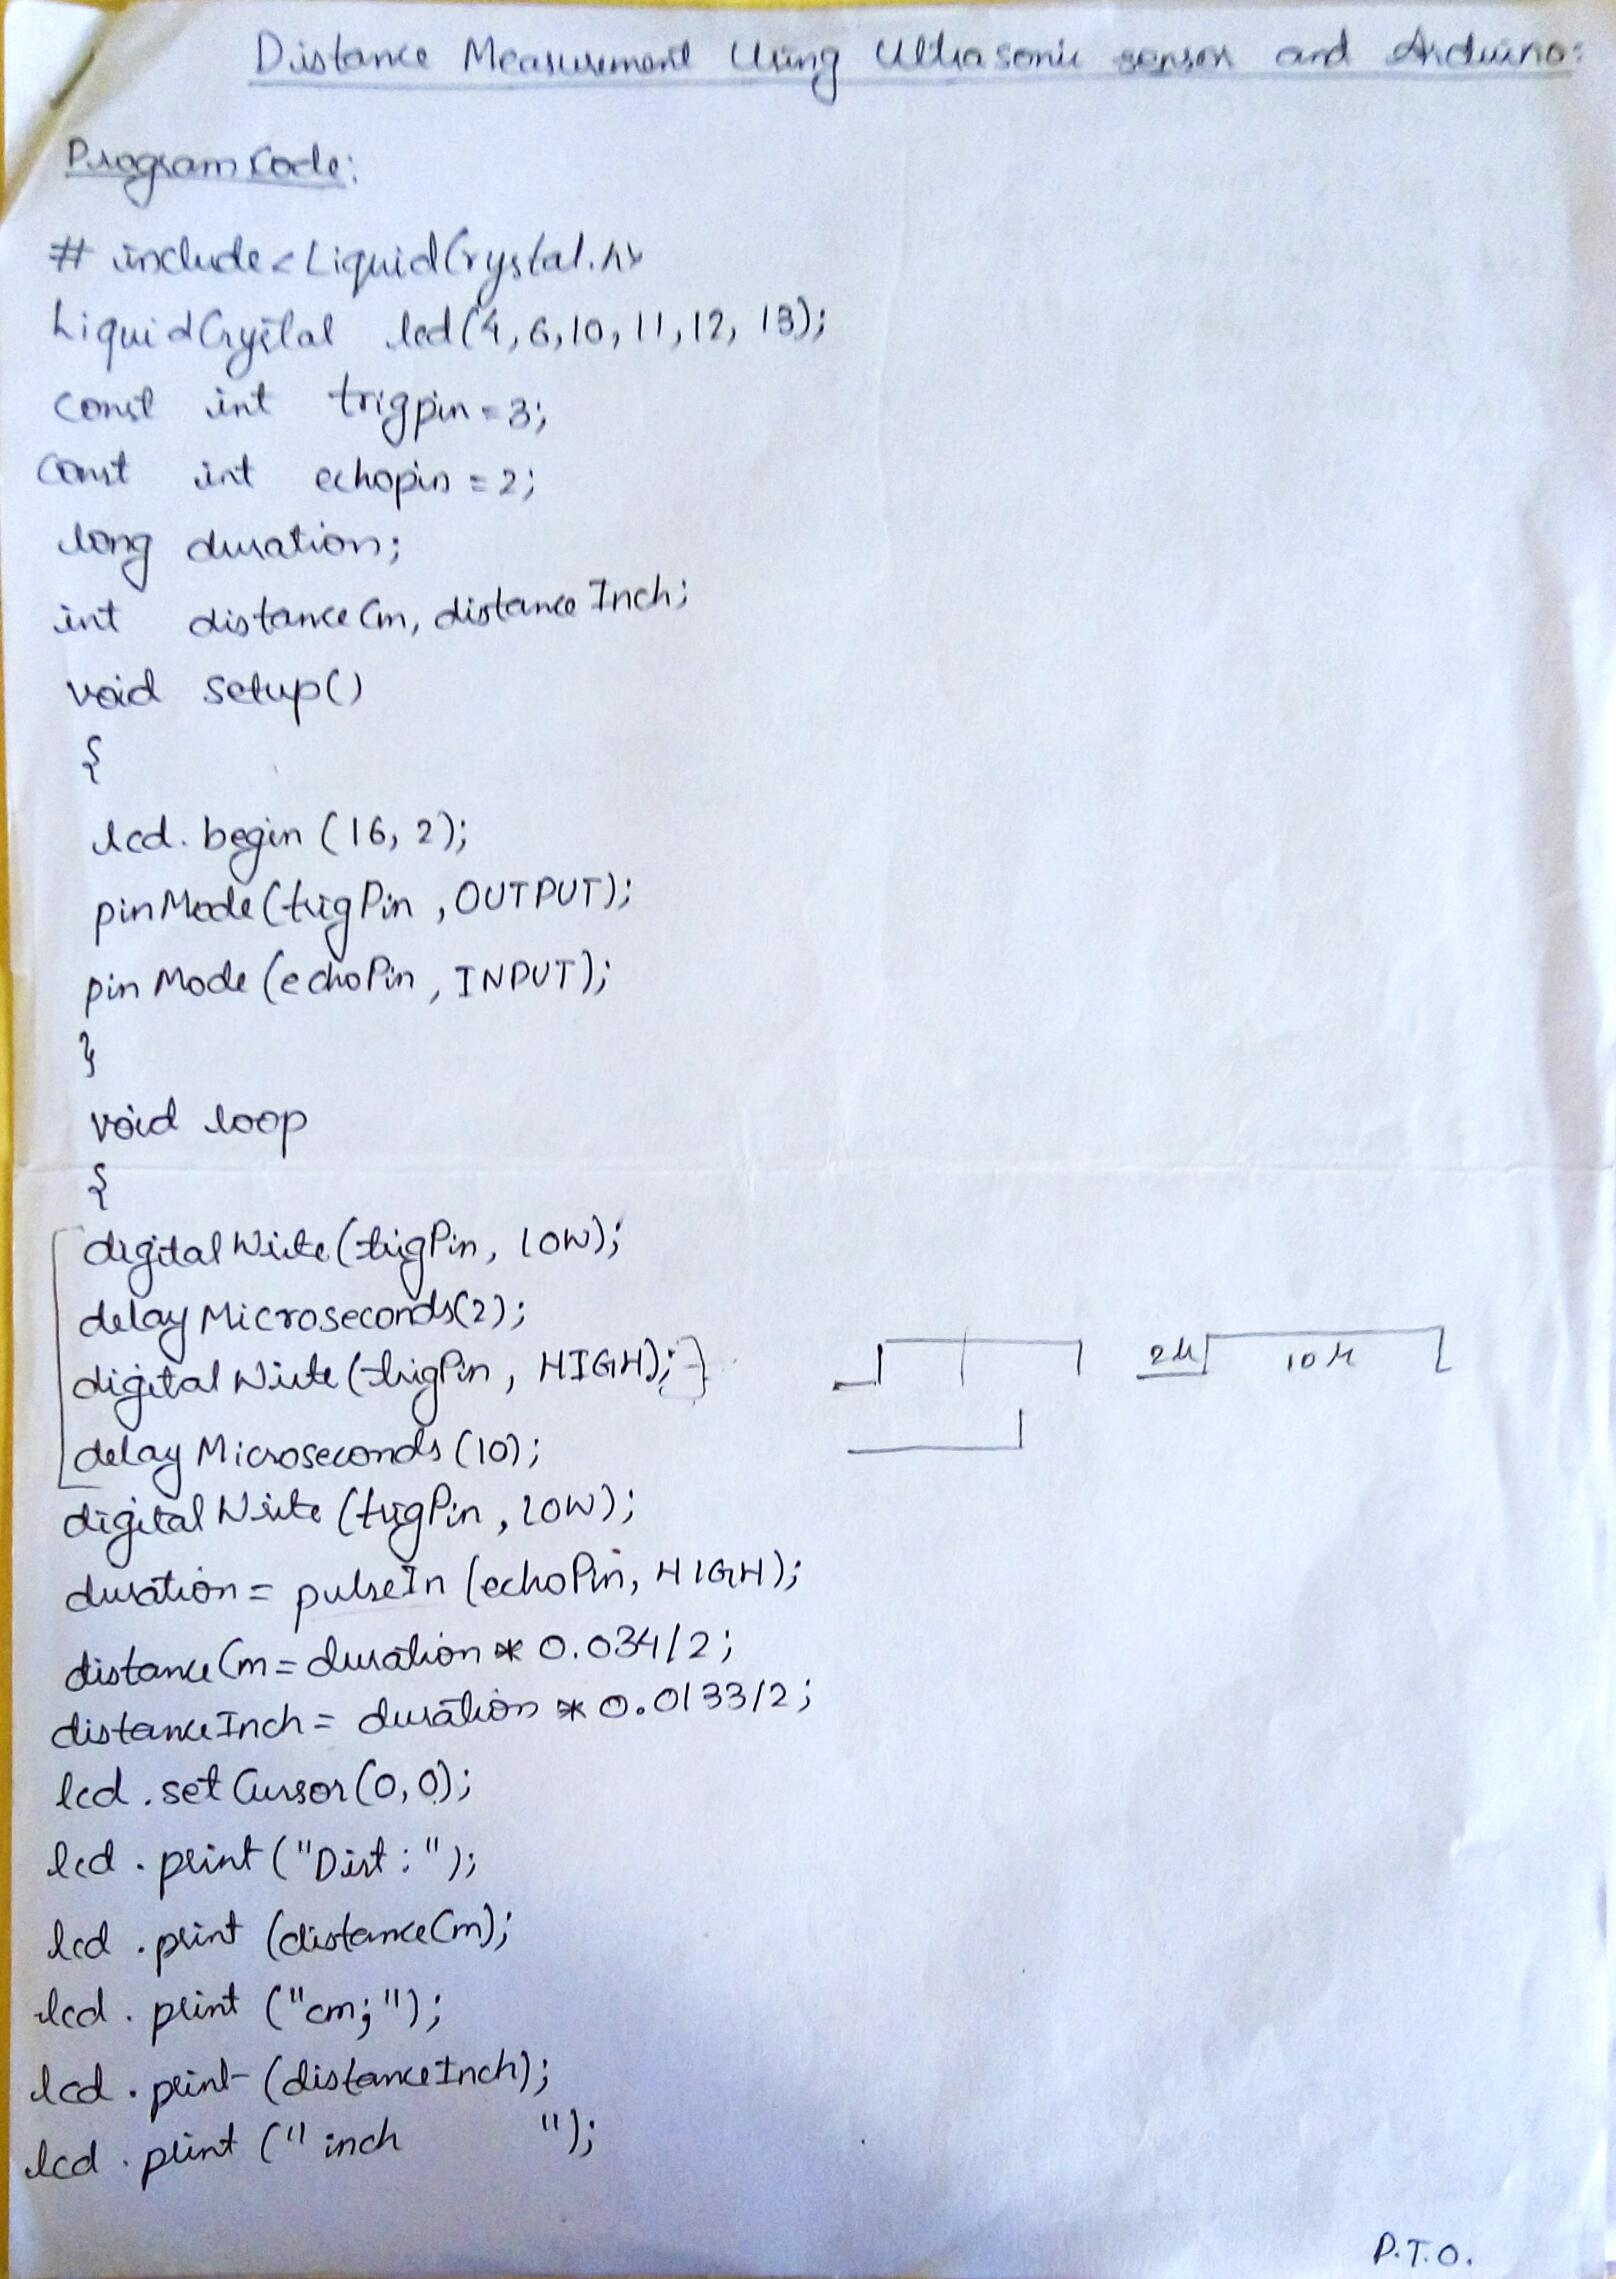 Distance Measurement Using Ultrasonic sensor and Arduino:
Program Code:
# include<LiquidCrystal.h>
LiquidCrystal lcd(4,6,10,11,12,13);
const int trigpin=3;
const int echopin=2;
long duration;
int distanceCm, distanceInch;
void setup()
{
lcd.begin(16, 2);
pinMode(trigPin, OUTPUT);
pinMode(echoPin, INPUT);
}
void loop
{
digitalWrite(trigPin, LOW);
delayMicroseconds(2);
digitalWrite(trigPin, HIGH);}
2μ 10μ
delayMicroseconds(10);
digitalWrite(trigPin, LOW);
duration = pulseIn(echoPin, HIGH);
distanceCm = duration * 0.034/2;
distanceInch = duration * 0.0133/2;
lcd.setCursor(0,0);
lcd.print("Dist:");
lcd.print(distanceCm);
lcd.print("cm;");
lcd.print(distanceInch);
lcd.print("inch ");
P.T.O.